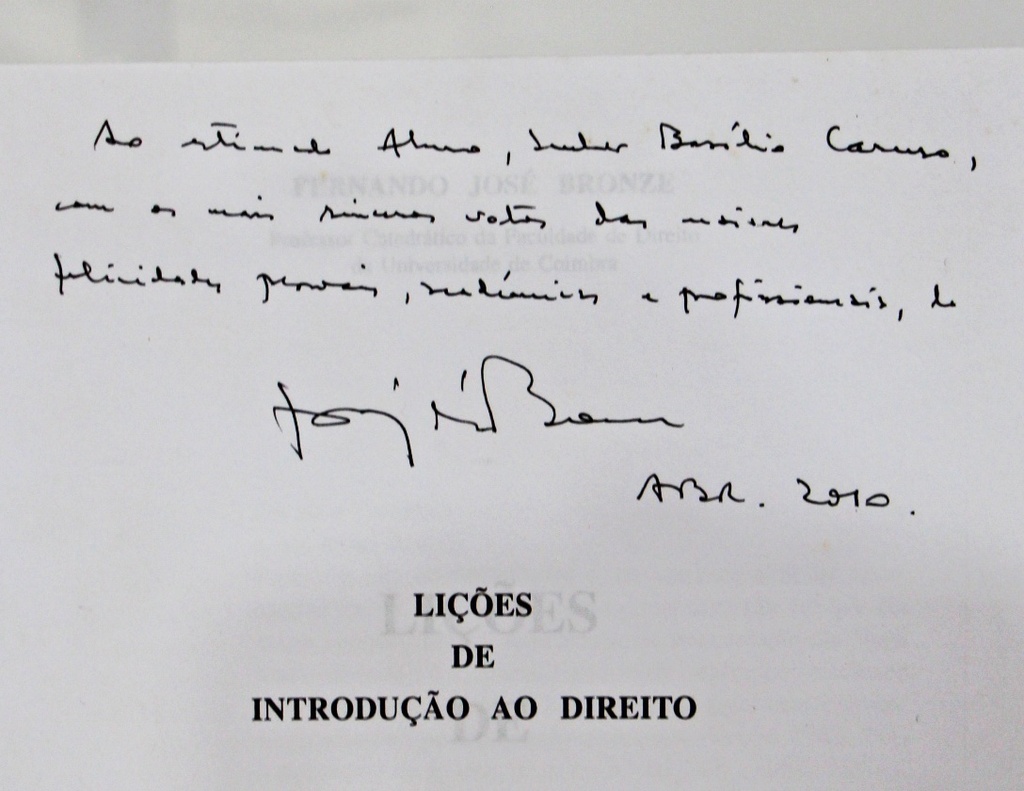 Ao estimado Aluno, Senhor Basílio Caruso,
com os mais sinceros votos das maiores
felicidades pessoais, académicas e profissionais, do
José Bronze
ABR. 2010.
FERNANDO JOSÉ BRONZE
Professor Catedrático da Faculdade de Direito
da Universidade de Coimbra
LIÇÕES
DE
INTRODUÇÃO AO DIREITO
LIÇÕES
DE